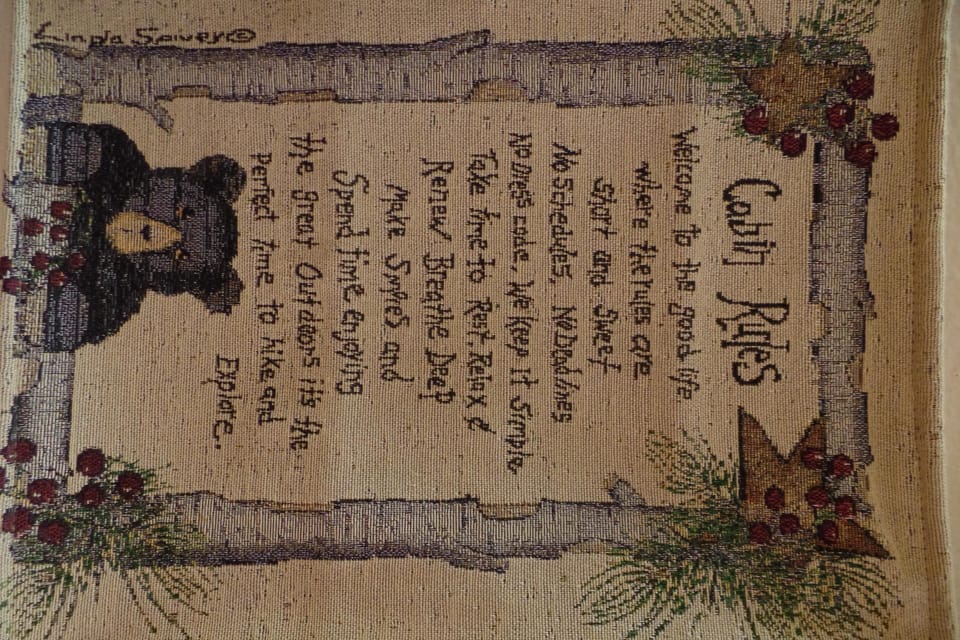 Cabin Rules
Welcome to the good life
where the rules are
Short and Sweet
No Schedules, No Deadlines
No Dress Code, We Keep It Simple
Take Time to Rest, Relax &
Renew Breathe Deep
Make Smores and
Spend time enjoying
the great Outdoors it's the
perfect time to hike and
Explore.
Linda Spivey©